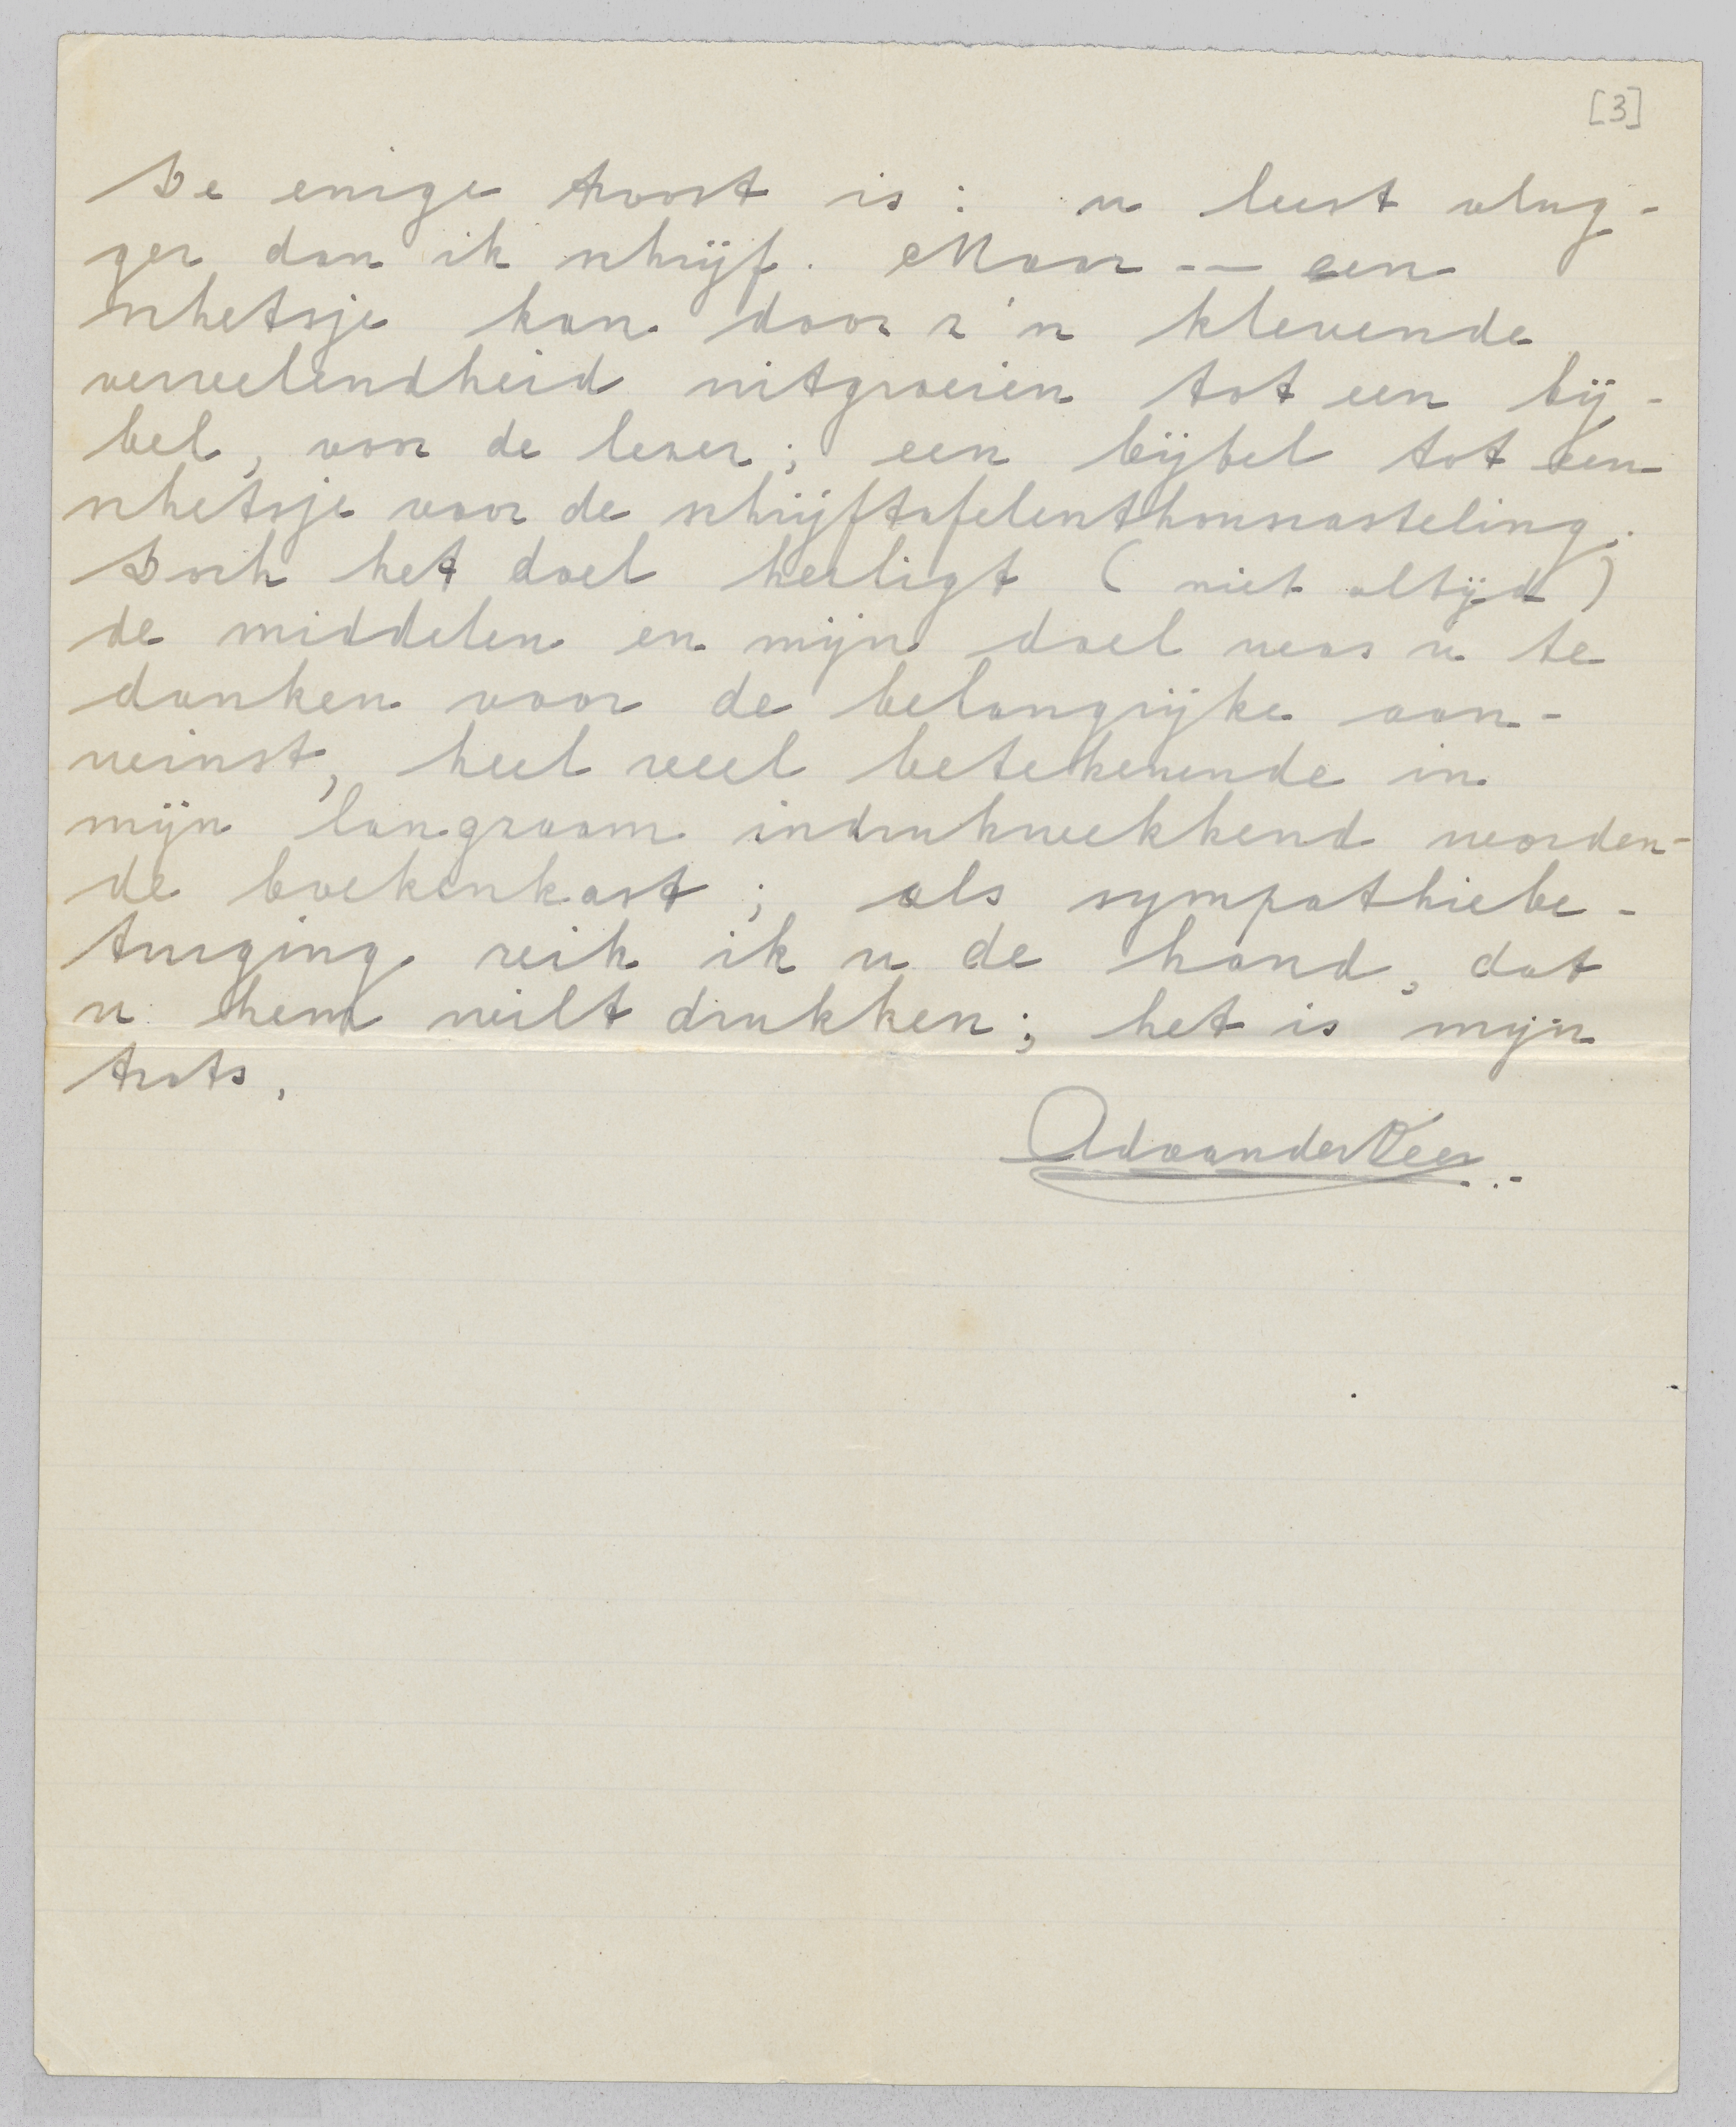 [3]
De enige troost is: u leest vlug-
ger dan ik schrijf. Maar -- een
schetsje kan door z'n klevende
vervelendheid uitgroeien tot een bij-
bel, voor de lezer; een bijbel tot een
schetsje voor de schrijftafelenthousiasteling.
Doch het doel heiligt (niet altijd)
de middelen en mijn doel was u te
danken voor de belangrijke aan-
winst, heel veel betekenende in
mijn langzaam indrukwekkend worden-
de boekenkast; als sympathiebe-
tuiging reik ik u de hand, dat
u hem wilt drukken; het is mijn
trots,
Ad van der Veer